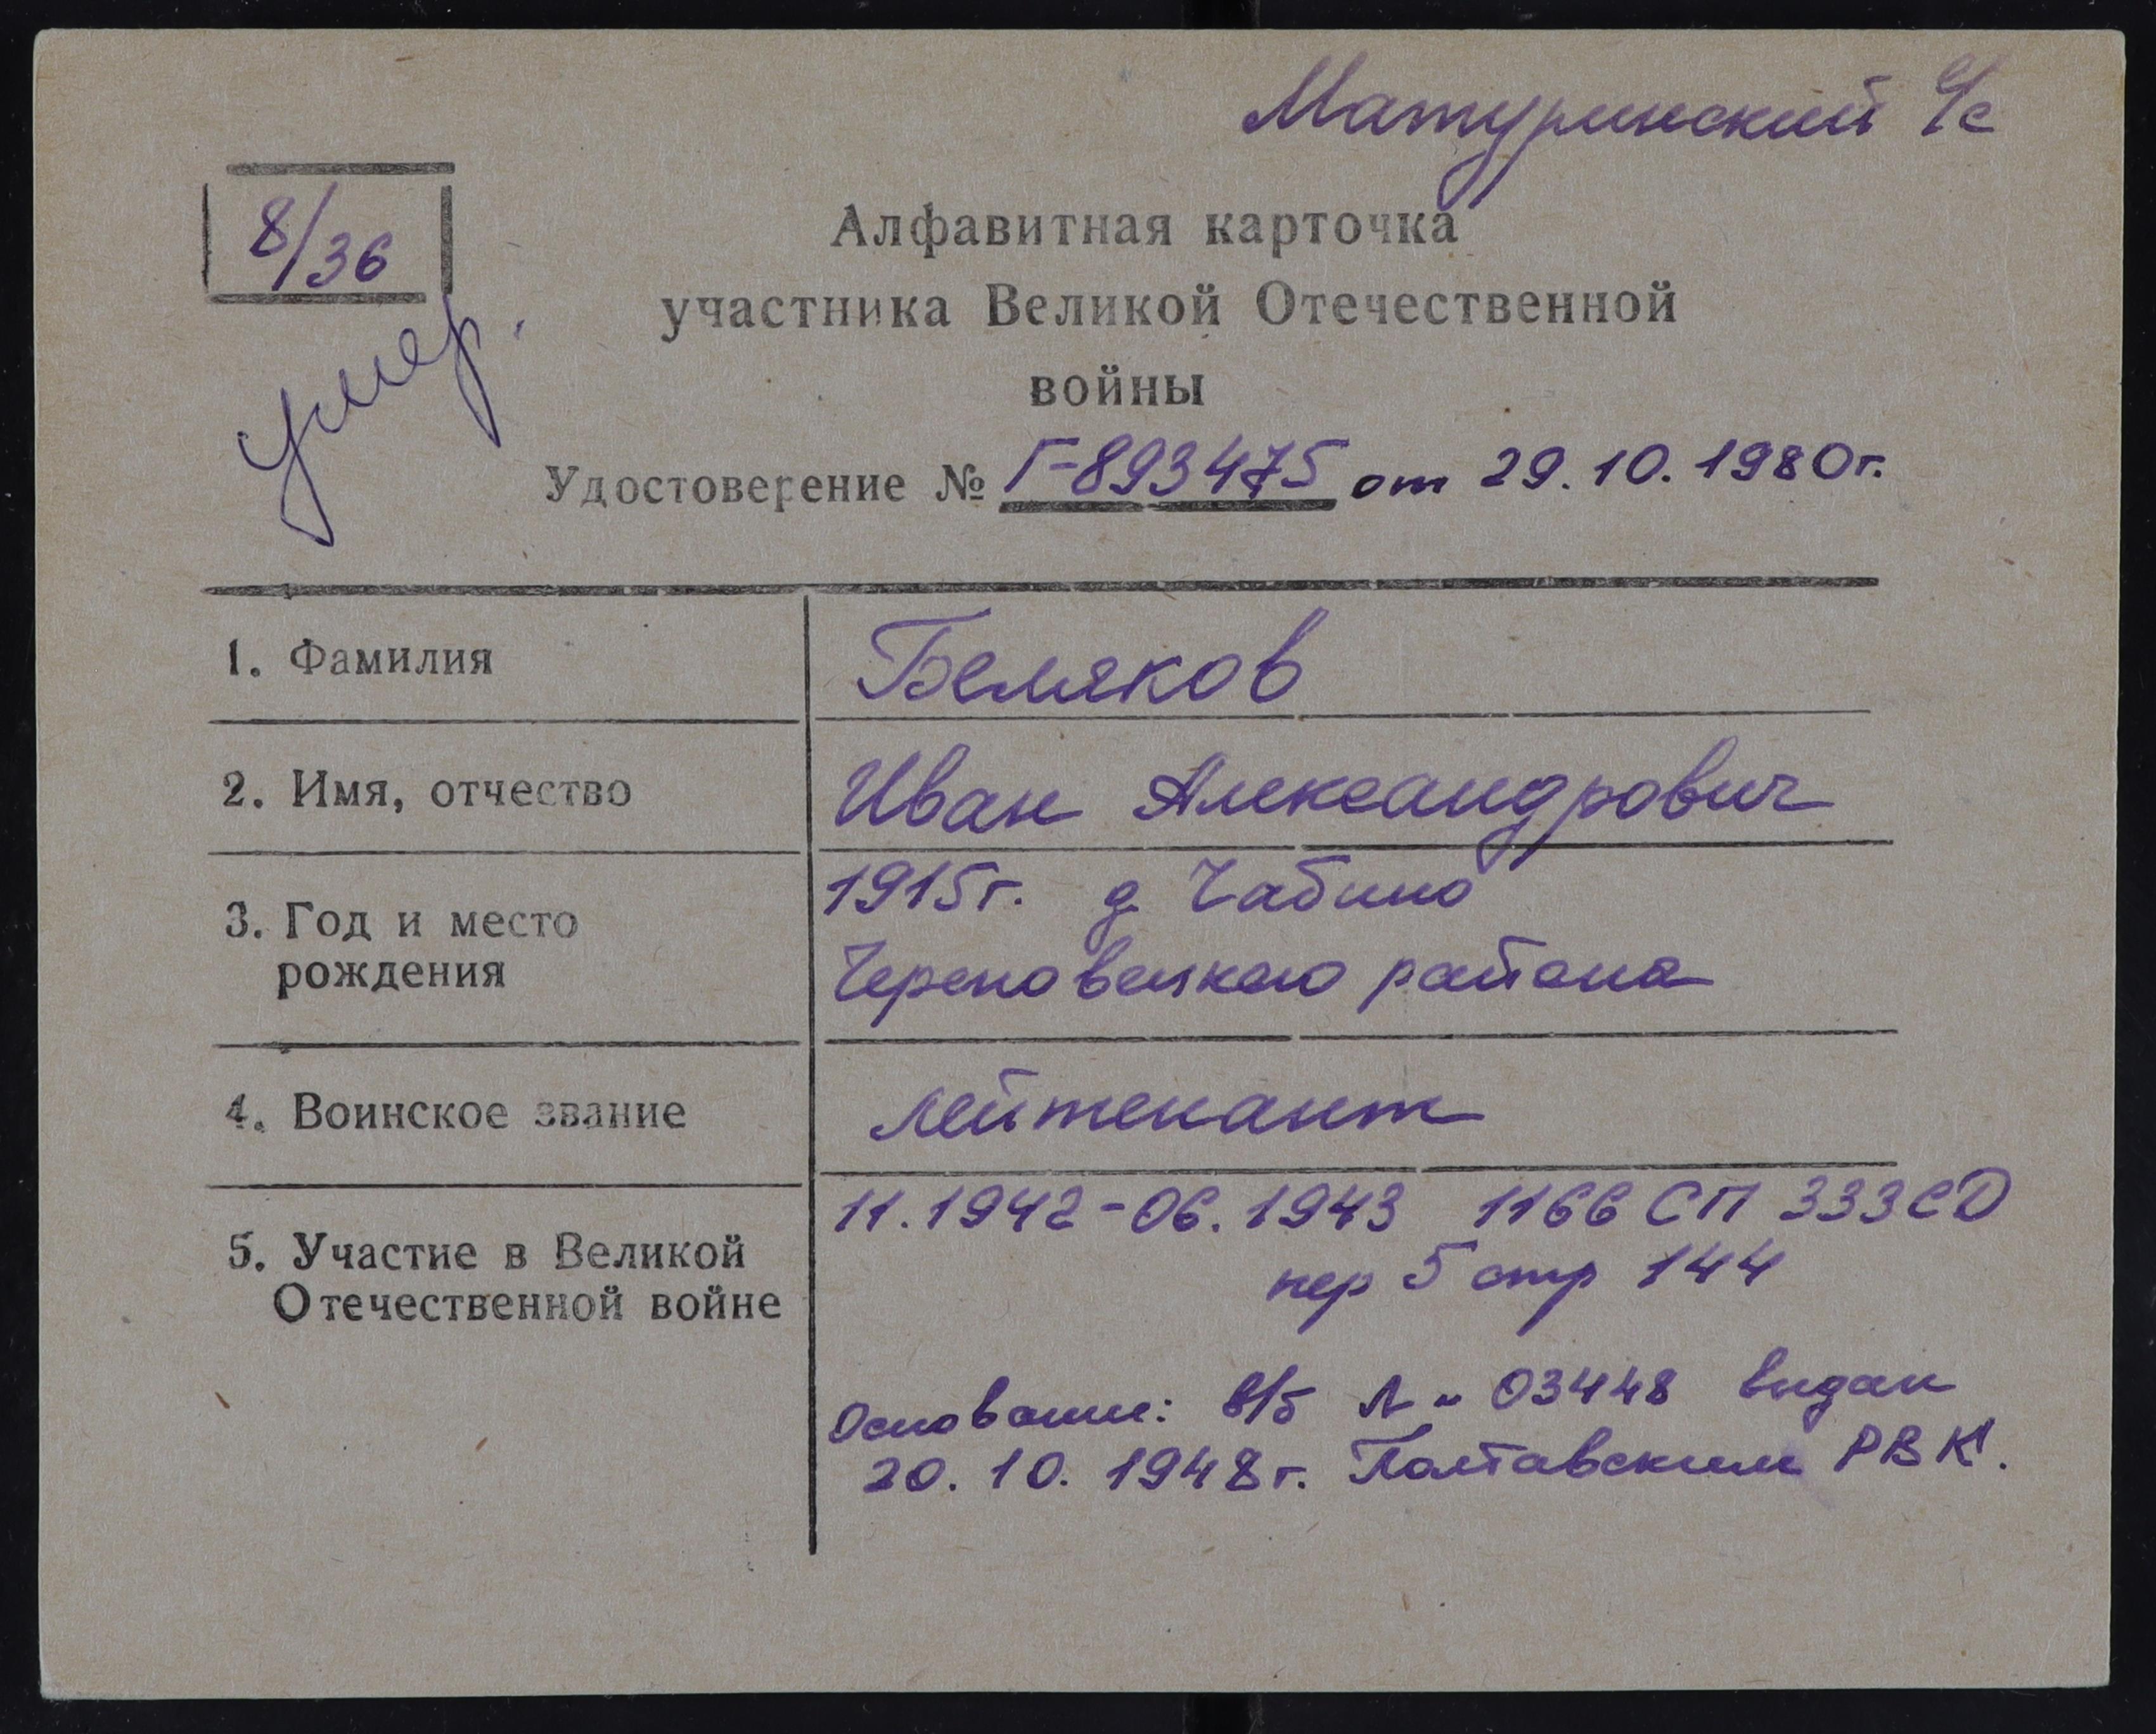 Матуринский с/с
8/36
умер.
Алфавитная карточка
участника Великой Отечественной
войны
Удостоверение № Г-893475 от 29.10.1980г.
1. Фамилия
Беляков
2. Имя, отчество
Иван Александрович
3. Год и место
рождения
1915г. д Чабино
Череповецкого района
4. Воинское звание
лейтенант
5. Участие в Великой
Отечественной войне
11.1942-06.1943 1166 СП 333 СД
пер 5 стр 144
Основание: в/б № 03448 выдан
20.10.1948г. Полтавским РВК.